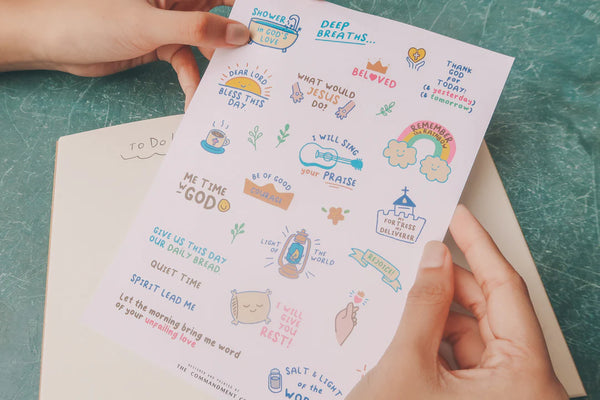 SHOWER
in GOD'S
LOVE
DEEP
BREATHS...
THANK
GOD for
TODAY!
(& yesterday)
(& tomorrow)
BELOVED
DEAR LORD
BLESS THIS
DAY
WHAT WOULD
JESUS
DO?
REMEMBER
the RAINBOW
To Do
I WILL SING
your PRAISE
ME TIME
w/ GOD
BE OF GOOD
COURAGE
MY
FORTRESS
and MY
DELIVERER
GIVE US THIS DAY
OUR DAILY BREAD
LIGHT of THE WORLD
REJOICE!
QUIET TIME
SPIRIT LEAD ME
I WILL
GIVE
YOU
REST!
Let the morning bring me word
of your unfailing love
DESIGNED AND PRINTED BY
THE COMMANDMENT
SALT & LIGHT
of the